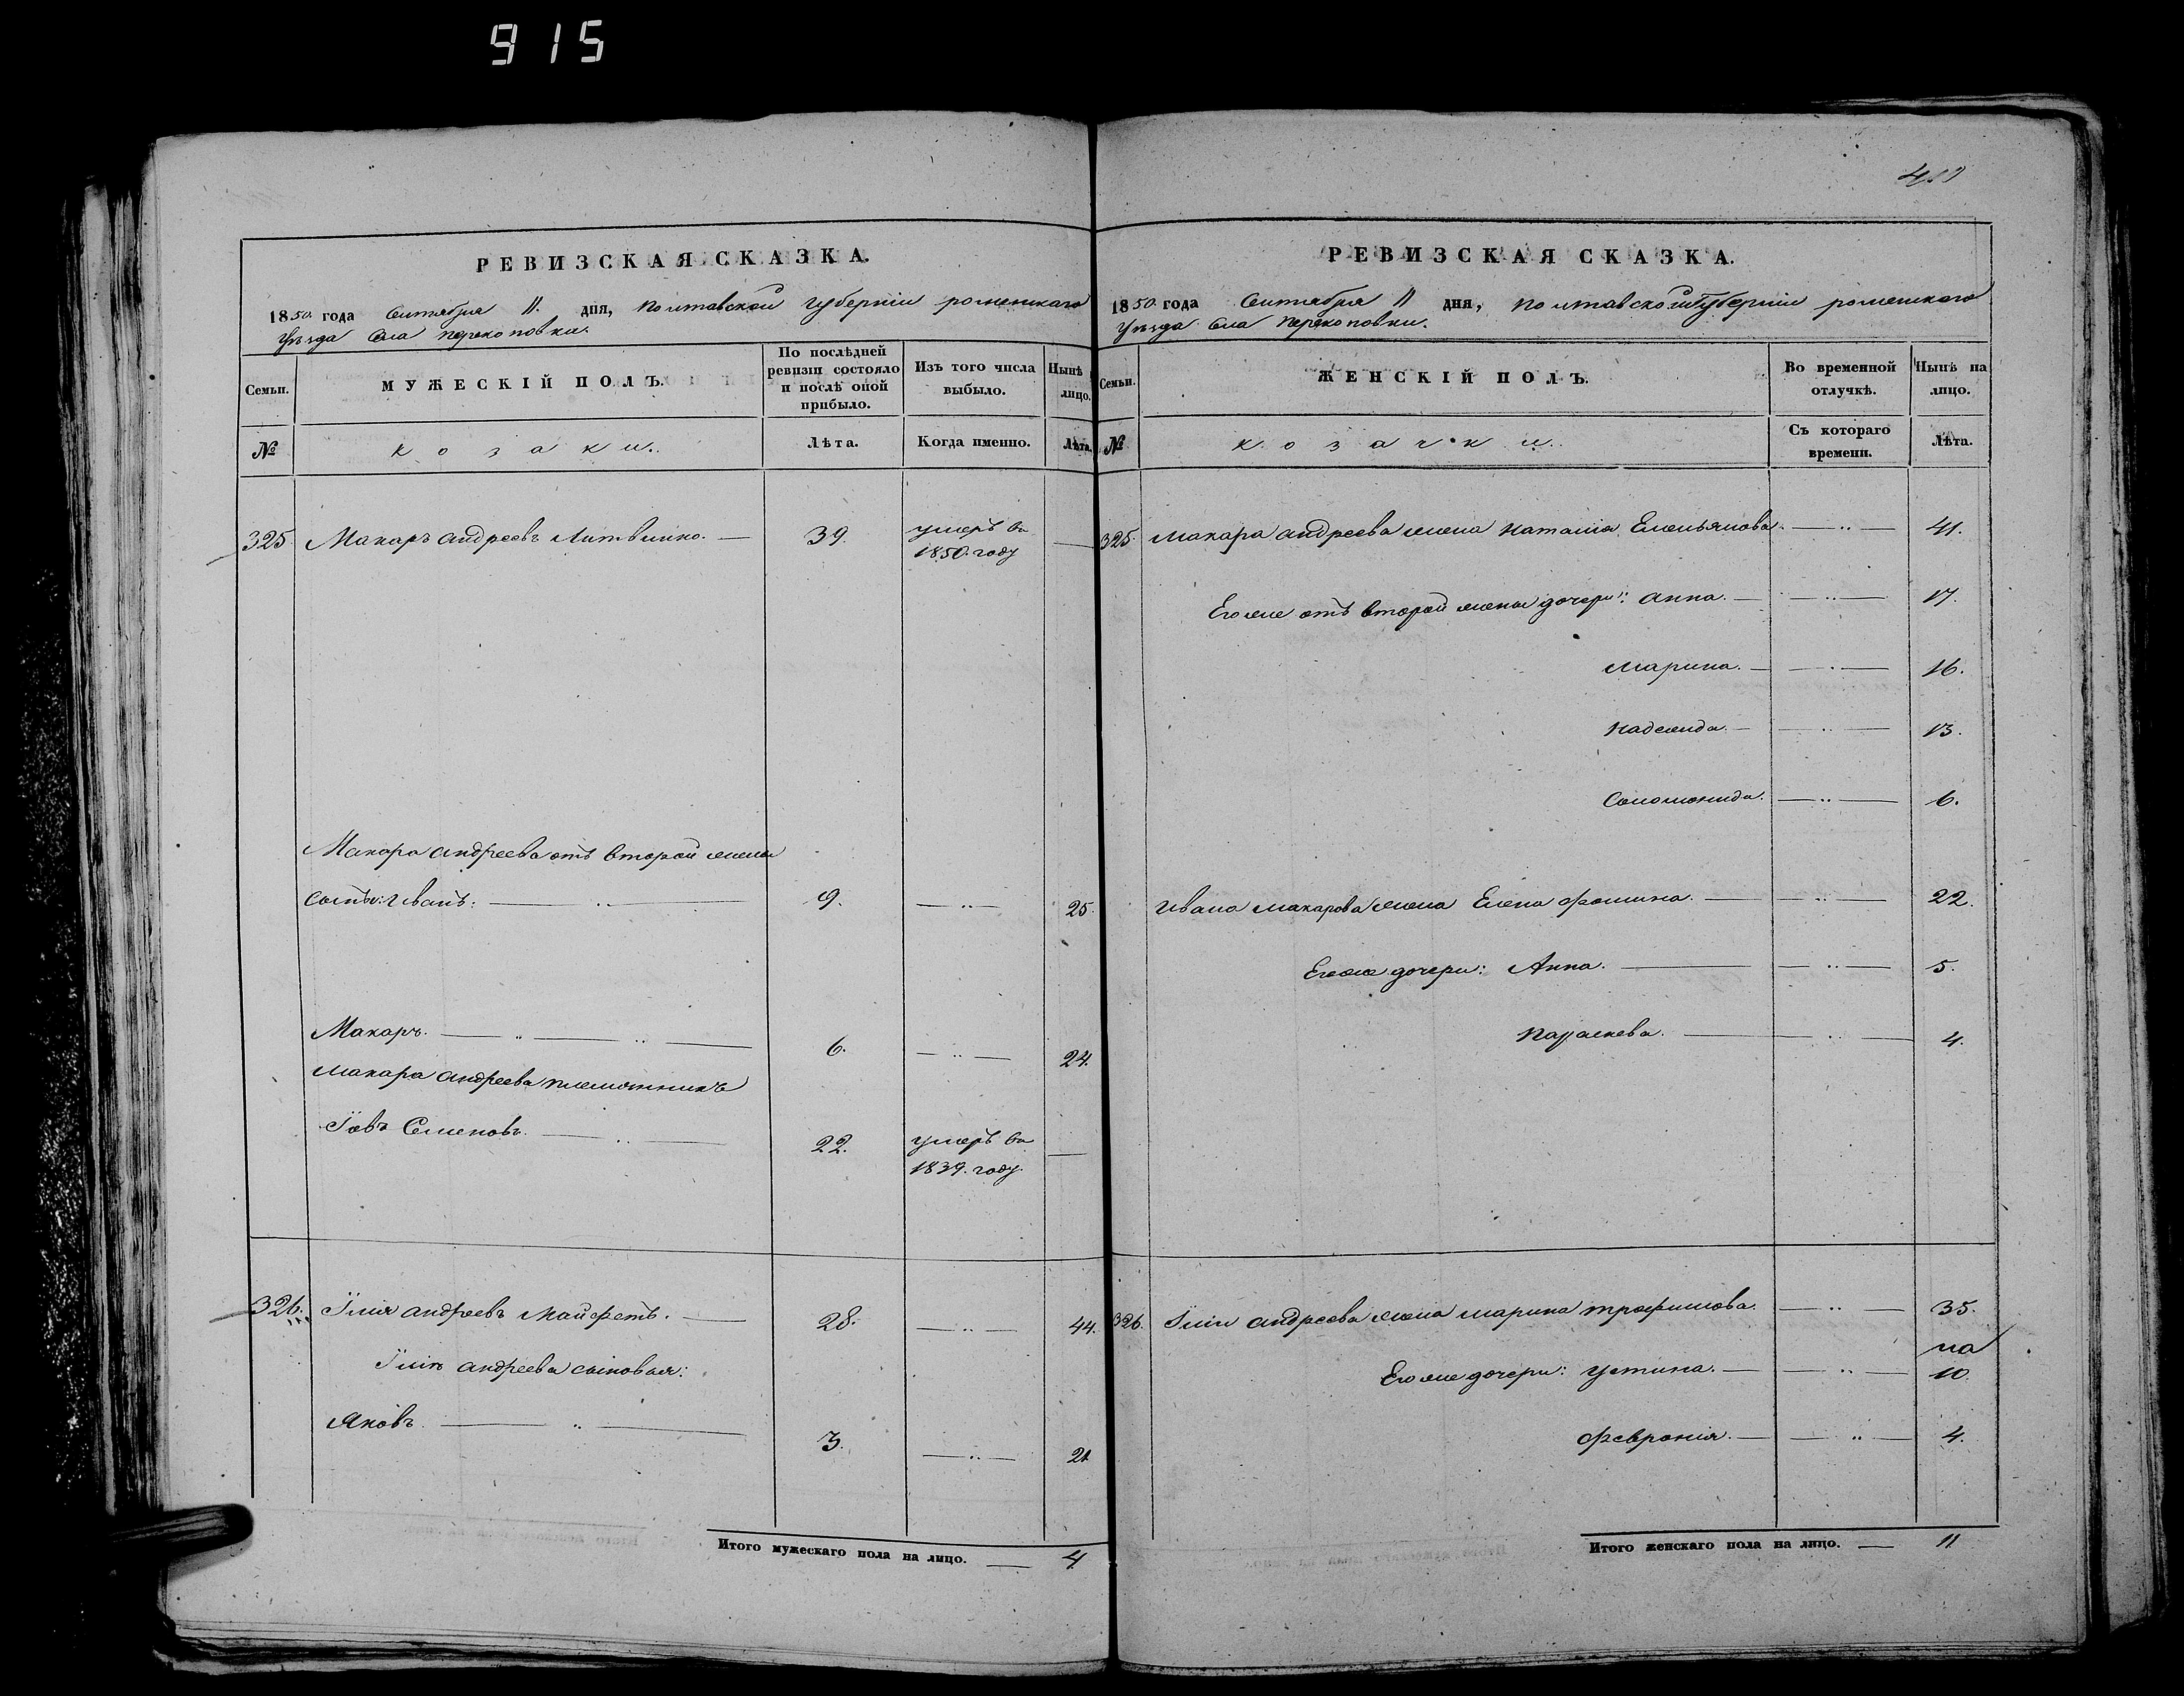 915
РЕВИЗСКАЯ СКАЗКА.
1850 года Сентября 11. дня, Полтавской губерніи роменскаго
уѣзда села Перекоповки.
Семьи.
МУЖЕСКІЙ ПОЛЪ.
По послѣдней
ревизіи состояло
и послѣ оной
прибыло.
Изъ того числа
выбыло.
Нынѣ
лицо.
№
козаки.
Лѣта.
Когда именно.
Лѣта.
325. Макаръ андреевъ Литвинко. — 39. умеръ въ —
1850. году
Макара андреева отъ второй жены
сынъ: Иванъ. — 9. — 25.
Макаръ. — 6. — 24.
Макара андреева племянникъ
Іовъ Семеновъ. — 22. умеръ въ —
1839. году.
326. Ілія андреевъ Майфетъ. — 28. — 44.
Іліи андреева сыновья:
Яковъ. — 3. — 21
Итого мужескаго пола на лицо. — 4
РЕВИЗСКАЯ СКАЗКА.
1850 года Сентября 11 дня, Полтавской губерніи роменскаго
уѣзда села Перекоповки.
Семьи.
ЖЕНСКІЙ ПОЛЪ.
Во временной
отлучкѣ.
Нынѣ на
лицо.
№
козачки.
Съ котораго
времени.
Лѣта.
325. Макара андреева жена Наталія Емельянова. — 41.
Его же отъ второй жены дочери: анна. — 17.
Марина. — 16.
Надежда. — 13.
Соломонида. — 6.
Ивана Макарова жена Елена Фомина. — 22.
Его же дочери: Анна. — 5.
Параскева. — 4.
326. Іліи андреева жена Марина Трофимова. — 35.
на
Его же дочери: Устина. — 10.
Феврония. — 4.
Итого женскаго пола на лицо. — 11